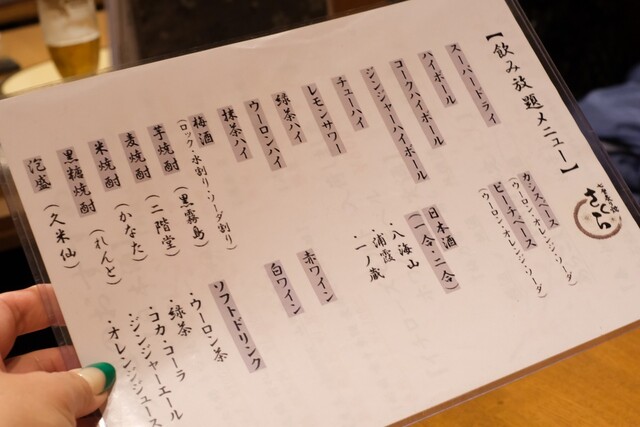 【飲み放題メニュー】
さくら
スーパードライ
ハイボール
コークハイボール
ジンジャーハイボール
チューハイ
レモンサワー
緑茶ハイ
ウーロンハイ
抹茶ハイ
梅酒
(ロック・水割り・ソーダ割り)
芋焼酎(黒霧島)
麦焼酎(二階堂)
米焼酎(かなた)
黒糖焼酎(れんと)
泡盛(久米仙)
カシスベース
(ウーロン・オレンジ・ソーダ)
ピーチベース
(ウーロン・オレンジ・ソーダ)
日本酒(一合・二合)
・八海山
・浦霞
・一ノ蔵
赤ワイン
白ワイン
ソフトドリンク
・ウーロン茶
・緑茶
・コカ・コーラ
・ジンジャーエール
・オレンジジュース